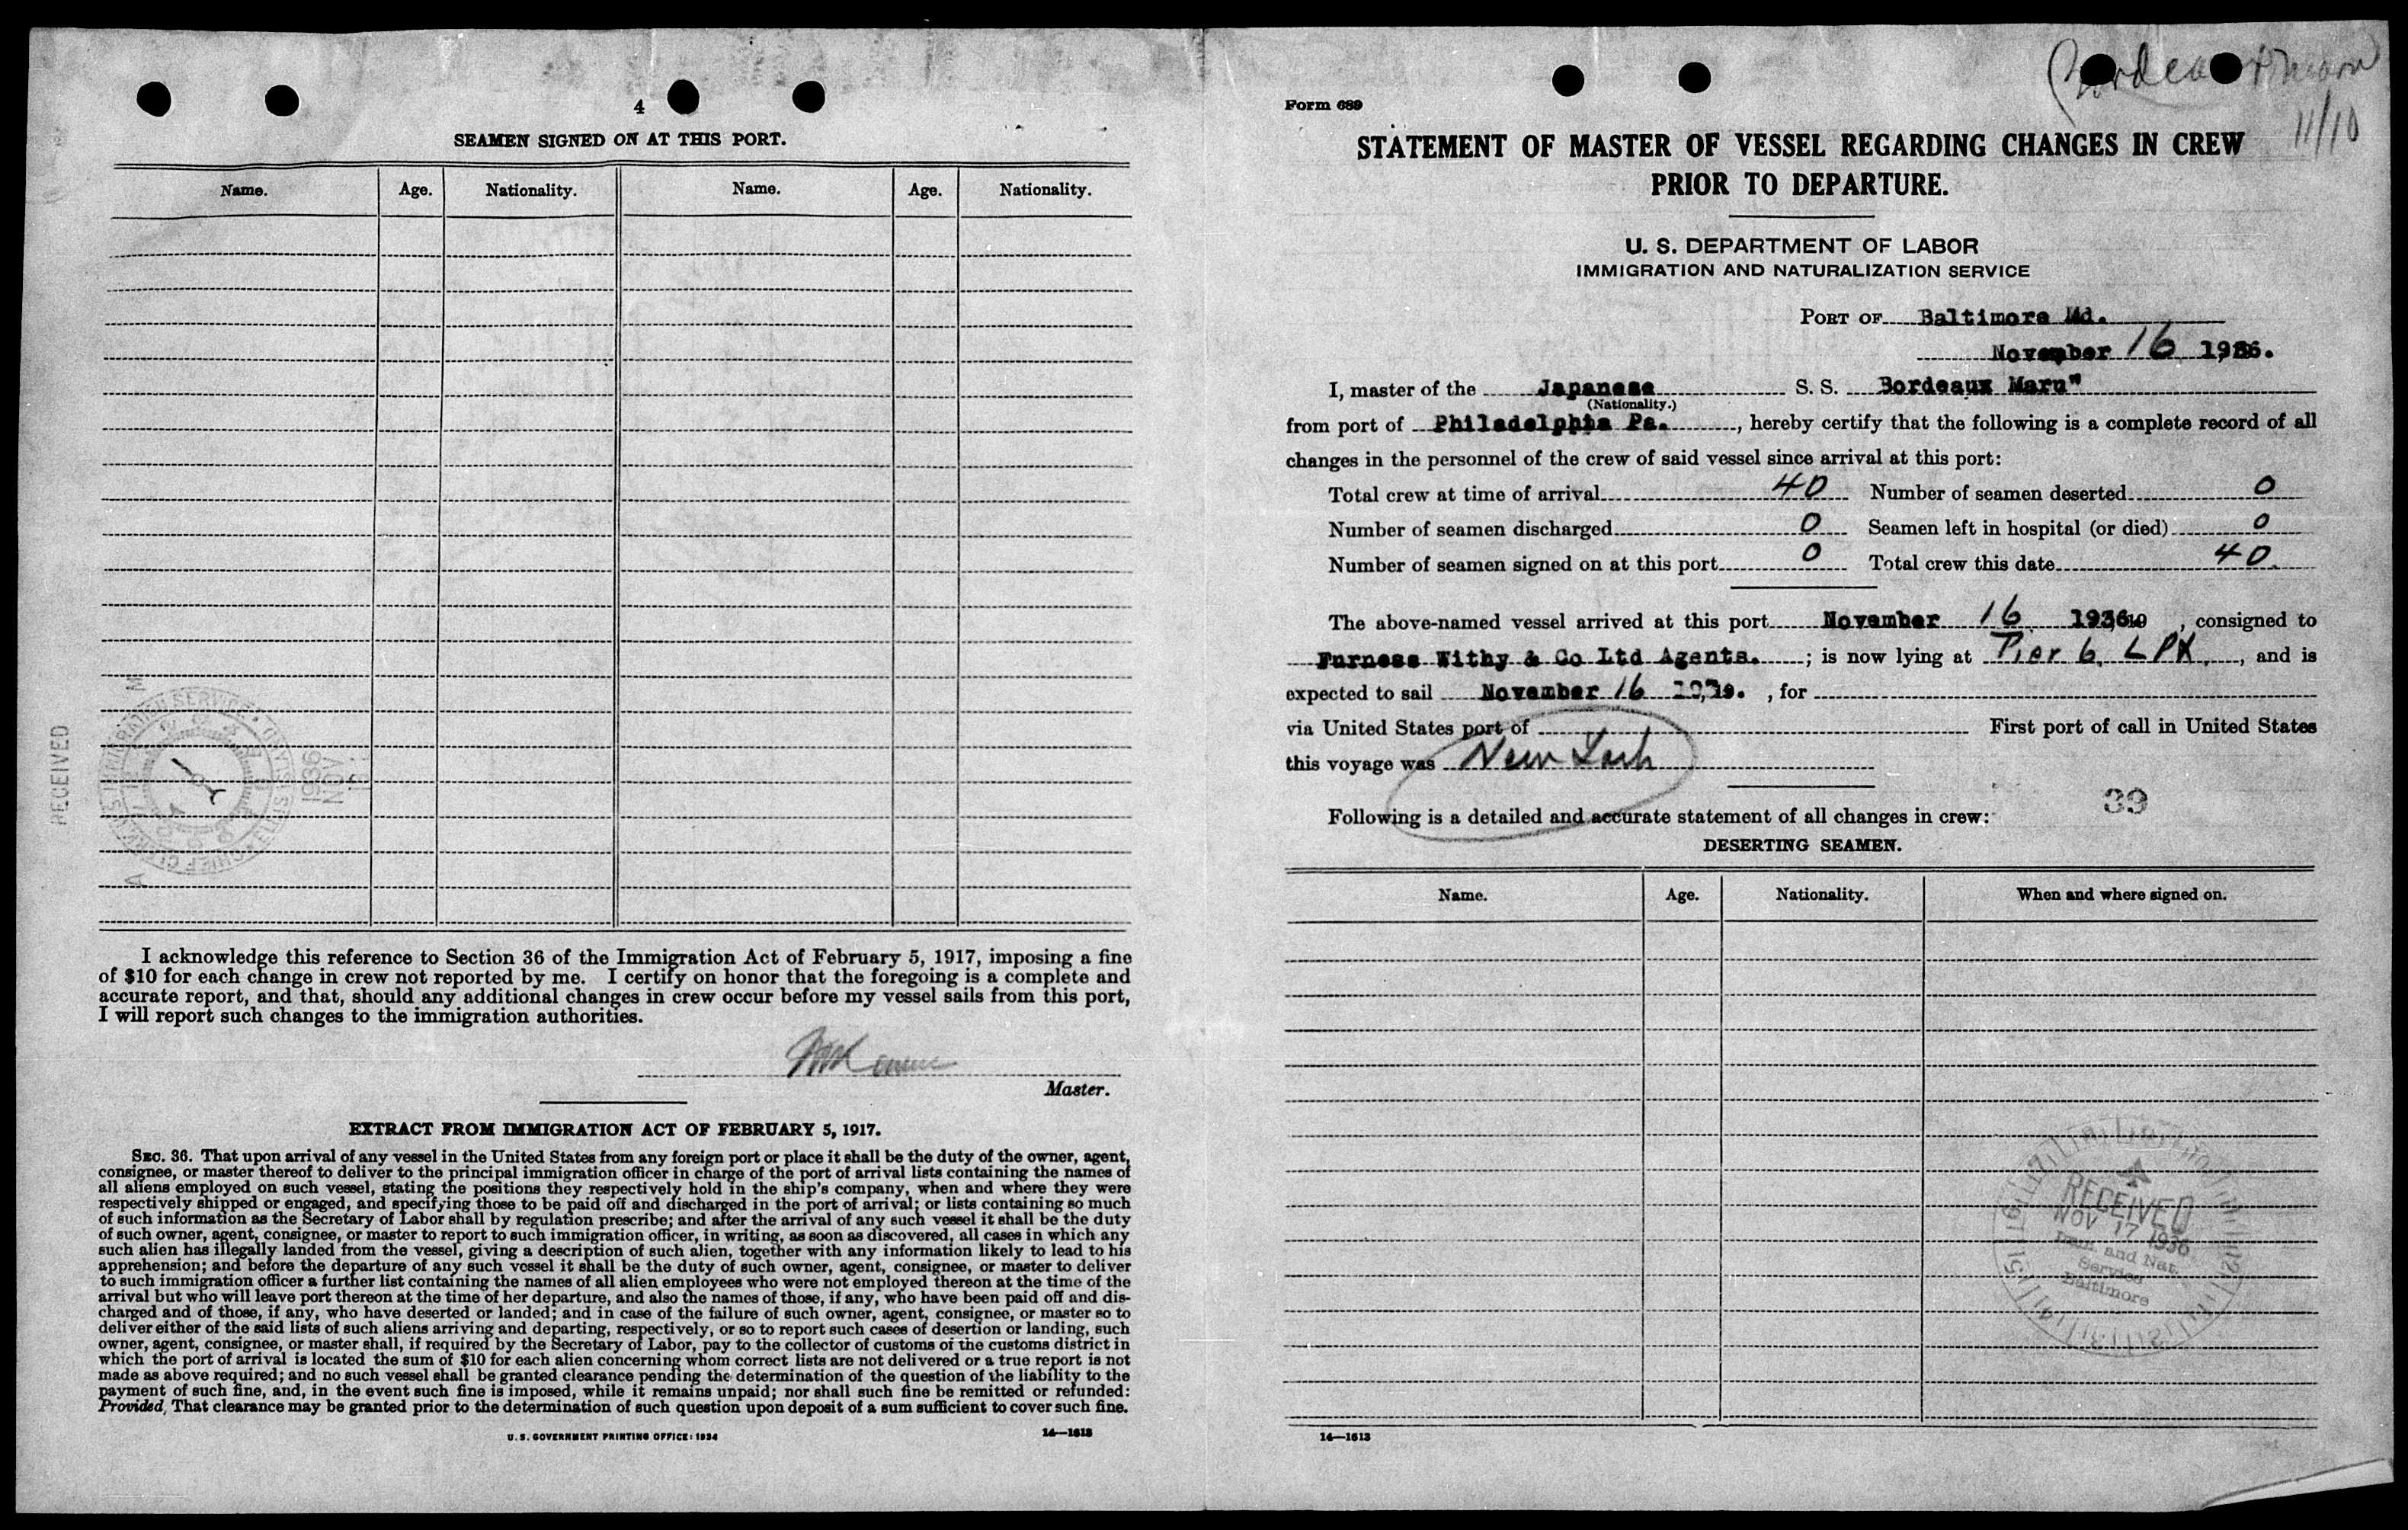 4
SEAMEN SIGNED ON AT THIS PORT.
Name. Age. Nationality. Name. Age. Nationality.
RECEIVED
1936
NOV
I acknowledge this reference to Section 36 of the Immigration Act of February 5, 1917, imposing a fine
of $10 for each change in crew not reported by me. I certify on honor that the foregoing is a complete and
accurate report, and that, should any additional changes in crew occur before my vessel sails from this port,
I will report such changes to the immigration authorities.
Master.
EXTRACT FROM IMMIGRATION ACT OF FEBRUARY 5, 1917.
SEC. 36. That upon arrival of any vessel in the United States from any foreign port or place it shall be the duty of the owner, agent,
consignee, or master thereof to deliver to the principal immigration officer in charge of the port of arrival lists containing the names of
all aliens employed on such vessel, stating the positions they respectively hold in the ship's company, when and where they were
respectively shipped or engaged, and specifying those to be paid off and discharged in the port of arrival; or lists containing so much
of such information as the Secretary of Labor shall by regulation prescribe; and after the arrival of any such vessel it shall be the duty
of such owner, agent, consignee, or master to report to such immigration officer, in writing, as soon as discovered, all cases in which any
such alien has illegally landed from the vessel, giving a description of such alien, together with any information likely to lead to his
apprehension; and before the departure of any such vessel it shall be the duty of such owner, agent, consignee, or master to deliver
to such immigration officer a further list containing the names of all alien employees who were not employed thereon at the time of the
arrival but who will leave port thereon at the time of her departure, and also the names of those, if any, who have been paid off and dis-
charged and of those, if any, who have deserted or landed; and in case of the failure of such owner, agent, consignee, or master so to
deliver either of the said lists of such aliens arriving and departing, respectively, or so to report such cases of desertion or landing, such
owner, agent, consignee, or master shall, if required by the Secretary of Labor, pay to the collector of customs of the customs district in
which the port of arrival is located the sum of $10 for each alien concerning whom correct lists are not delivered or a true report is not
made as above required; and no such vessel shall be granted clearance pending the determination of the question of the liability to the
payment of such fine, and, in the event such fine is imposed, while it remains unpaid; nor shall such fine be remitted or refunded:
Provided, That clearance may be granted prior to the determination of such question upon deposit of a sum sufficient to cover such fine.
U. S. GOVERNMENT PRINTING OFFICE: 1934 14—1613
11/10
Form 689
STATEMENT OF MASTER OF VESSEL REGARDING CHANGES IN CREW
PRIOR TO DEPARTURE.
U. S. DEPARTMENT OF LABOR
IMMIGRATION AND NATURALIZATION SERVICE
PORT OF Baltimore Md.
November 16 1936.
I, master of the Japanese S. S. Bordeaux Maru"
(Nationality.)
from port of Philadelphia Pa. , hereby certify that the following is a complete record of all
changes in the personnel of the crew of said vessel since arrival at this port:
Total crew at time of arrival 40 Number of seamen deserted 0
Number of seamen discharged 0 Seamen left in hospital (or died) 0
Number of seamen signed on at this port 0 Total crew this date 40
The above-named vessel arrived at this port November 16 1936 , consigned to
Furness Withy & Co Ltd Agents. ; is now lying at Pier 6, , and is
expected to sail November 16 , for
via United States port of First port of call in United States
this voyage was New York
39
Following is a detailed and accurate statement of all changes in crew:
DESERTING SEAMEN.
Name. Age. Nationality. When and where signed on.
RECEIVED
NOV 17 1936
Imm. and Nat.
Service
Baltimore
14—1613